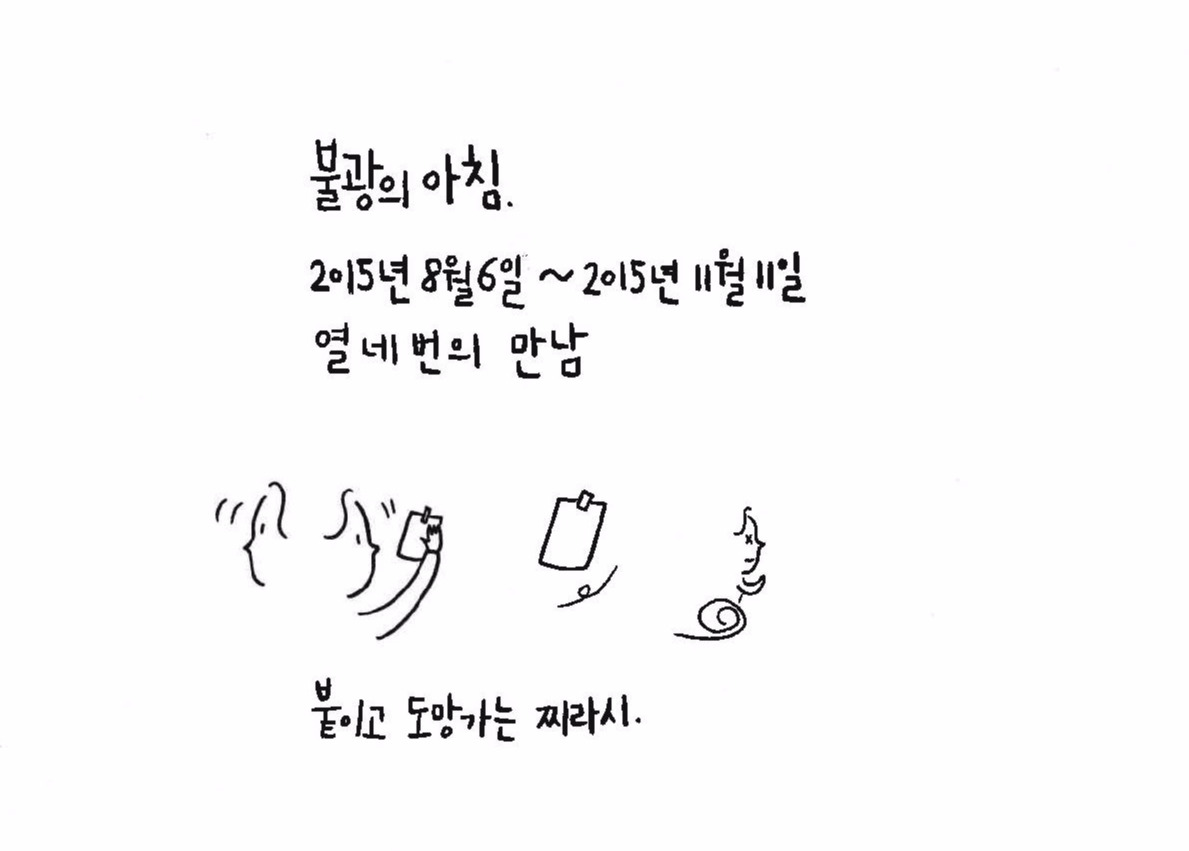 불광의 아침.
2015년 8월 6일 ~ 2015년 11월 11일
열네 번의 만남
붙이고 도망가는 찌라시.